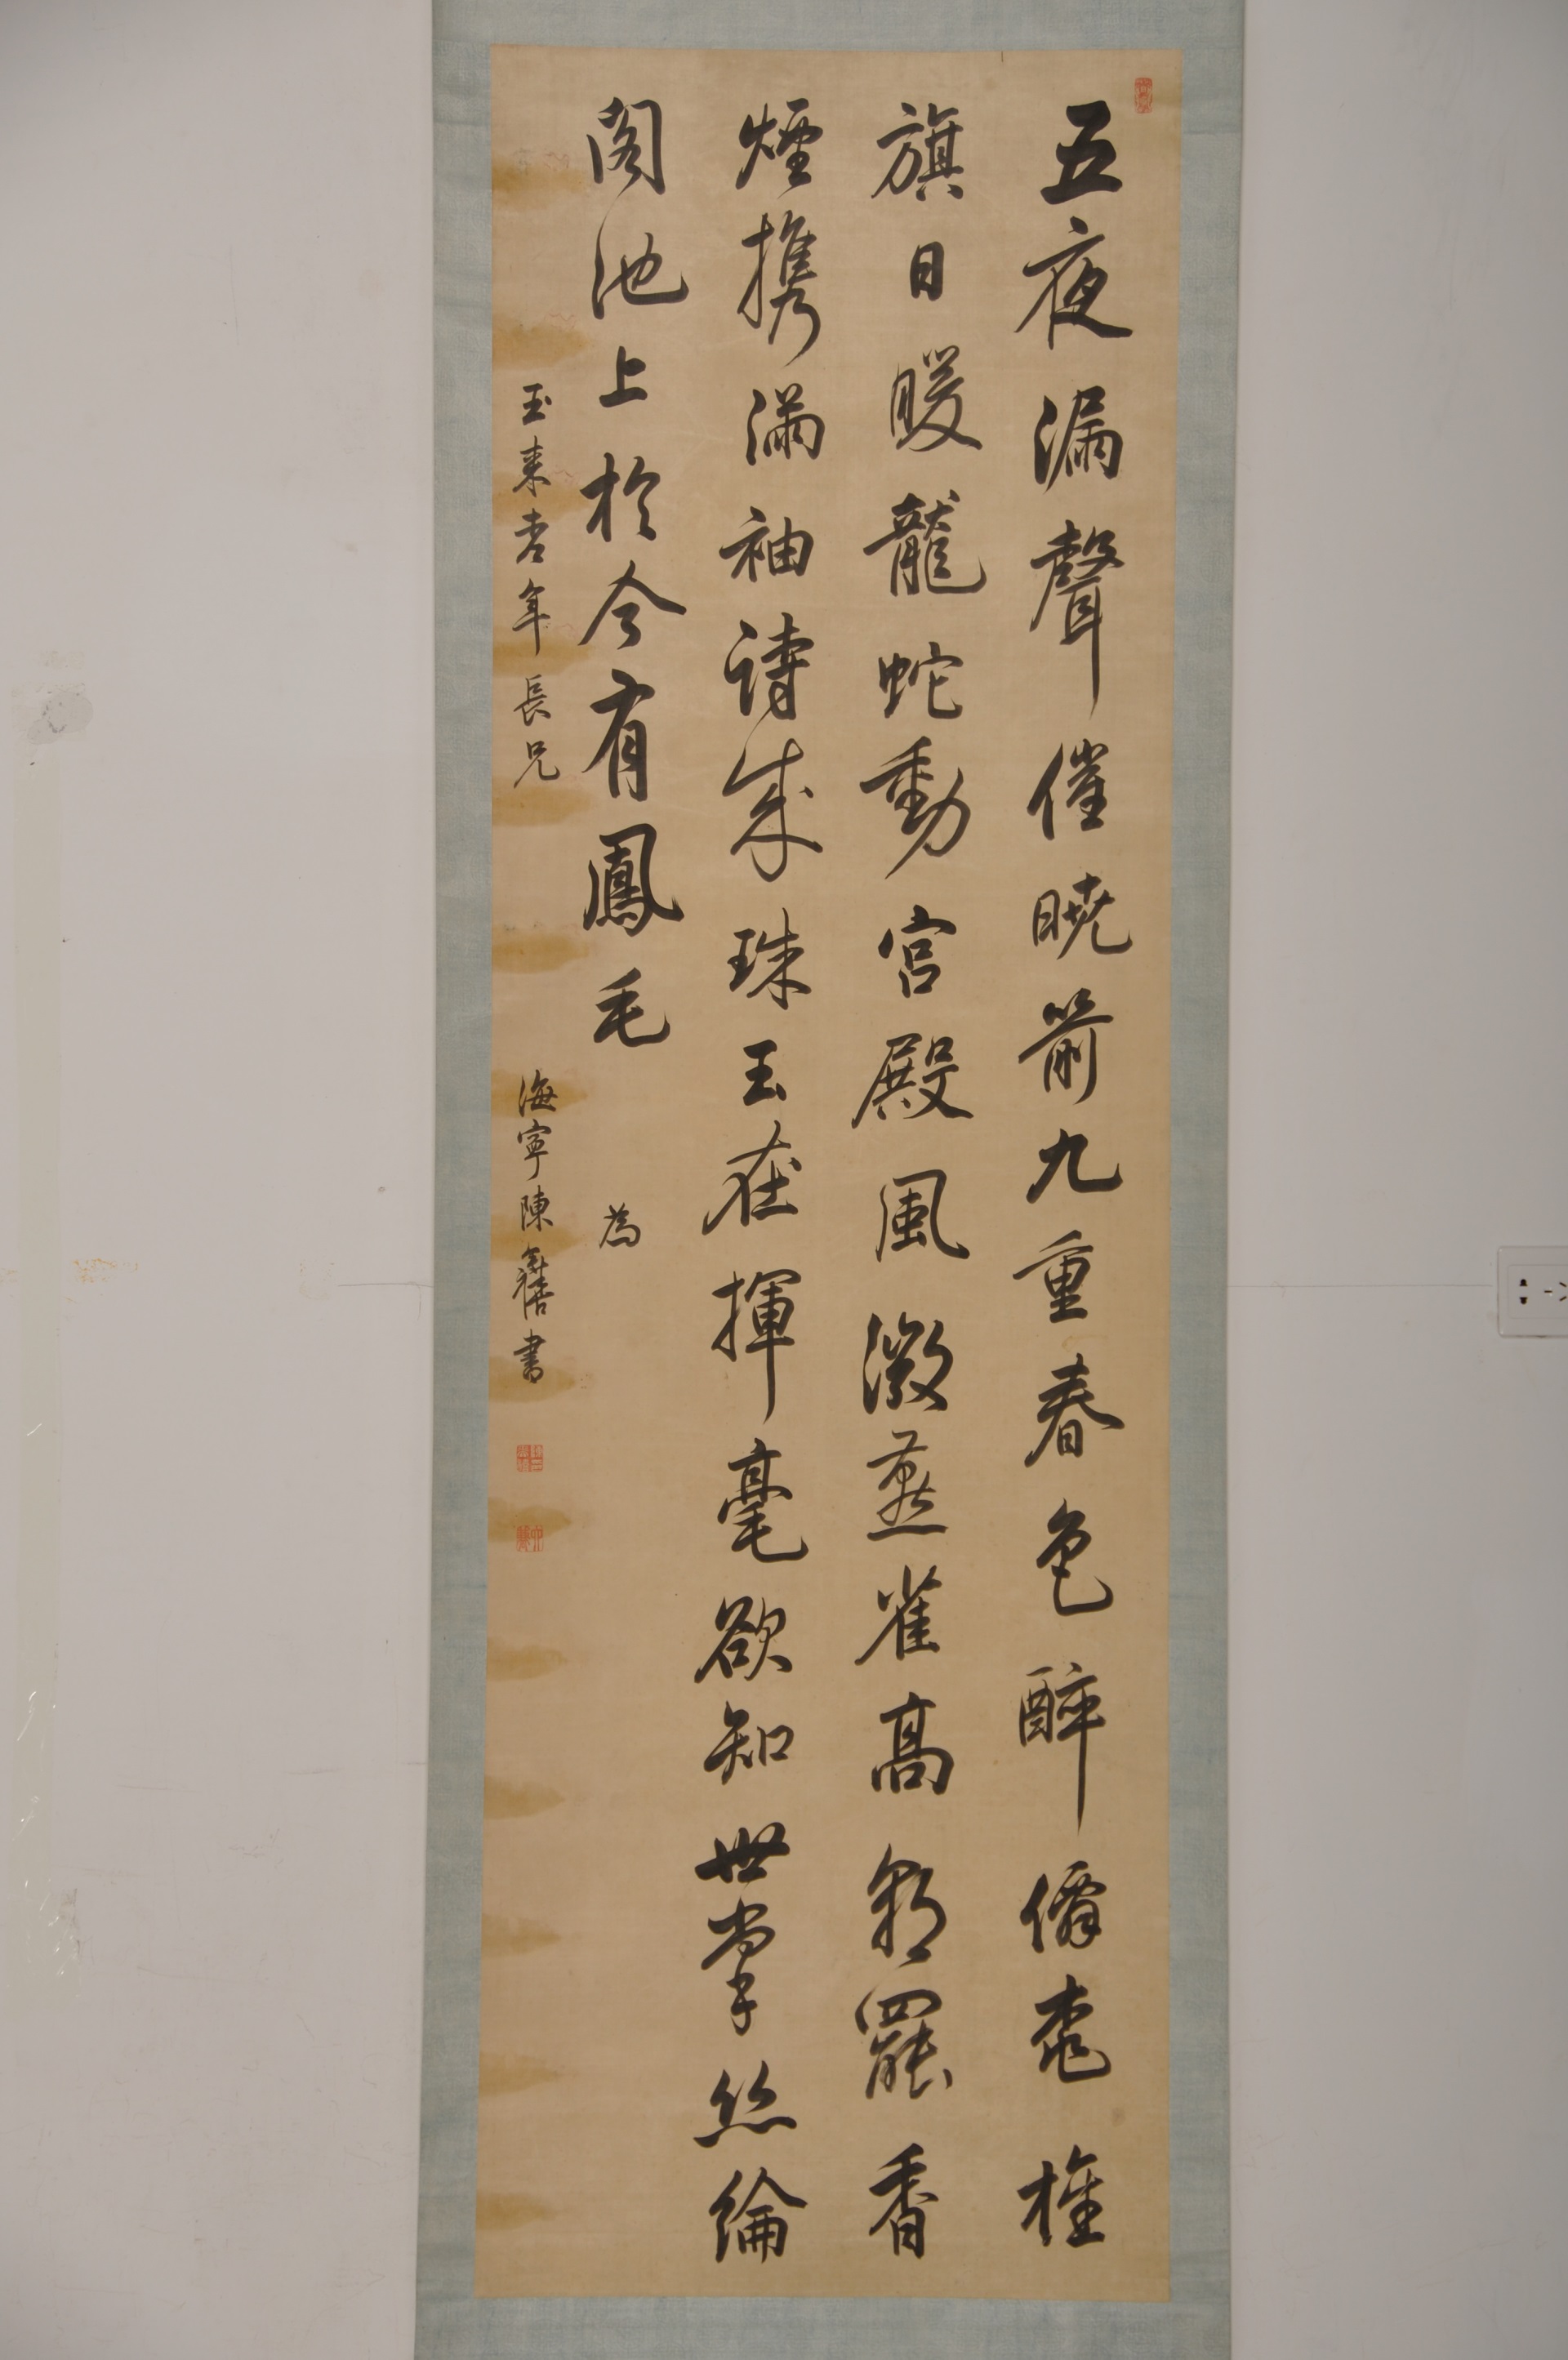 五夜漏聲催曉箭九重春色醉僊桃旌
旗日暖龍蛇動宮殿風微燕雀高朝罷香
煙携滿袖詩成珠玉在揮毫欲知世掌絲綸
閣池上於今有鳳毛 為
玉來老年長兄 海寧陳奕禧書